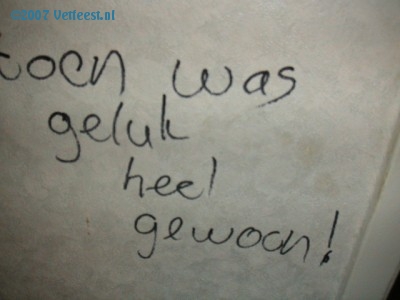 ©2007 Vetfeest.nl
toen was
geluk
heel
gewoon!